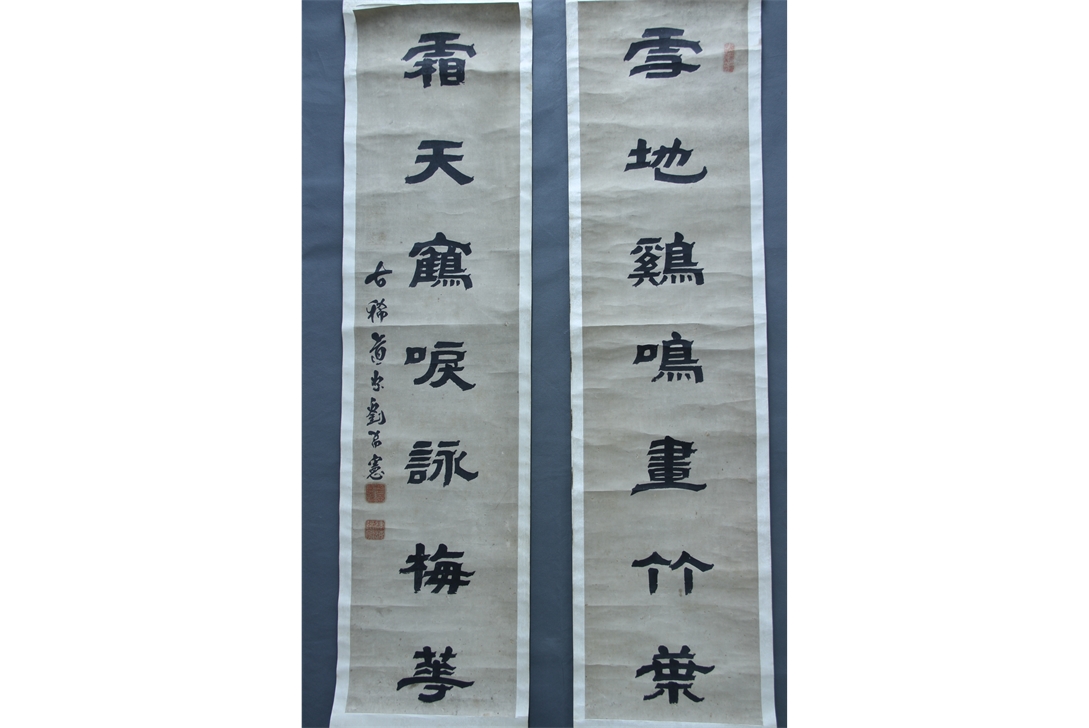 雪地鷄鳴畫竹葉
霜天鶴唳詠梅華
古稀道末劉名憲